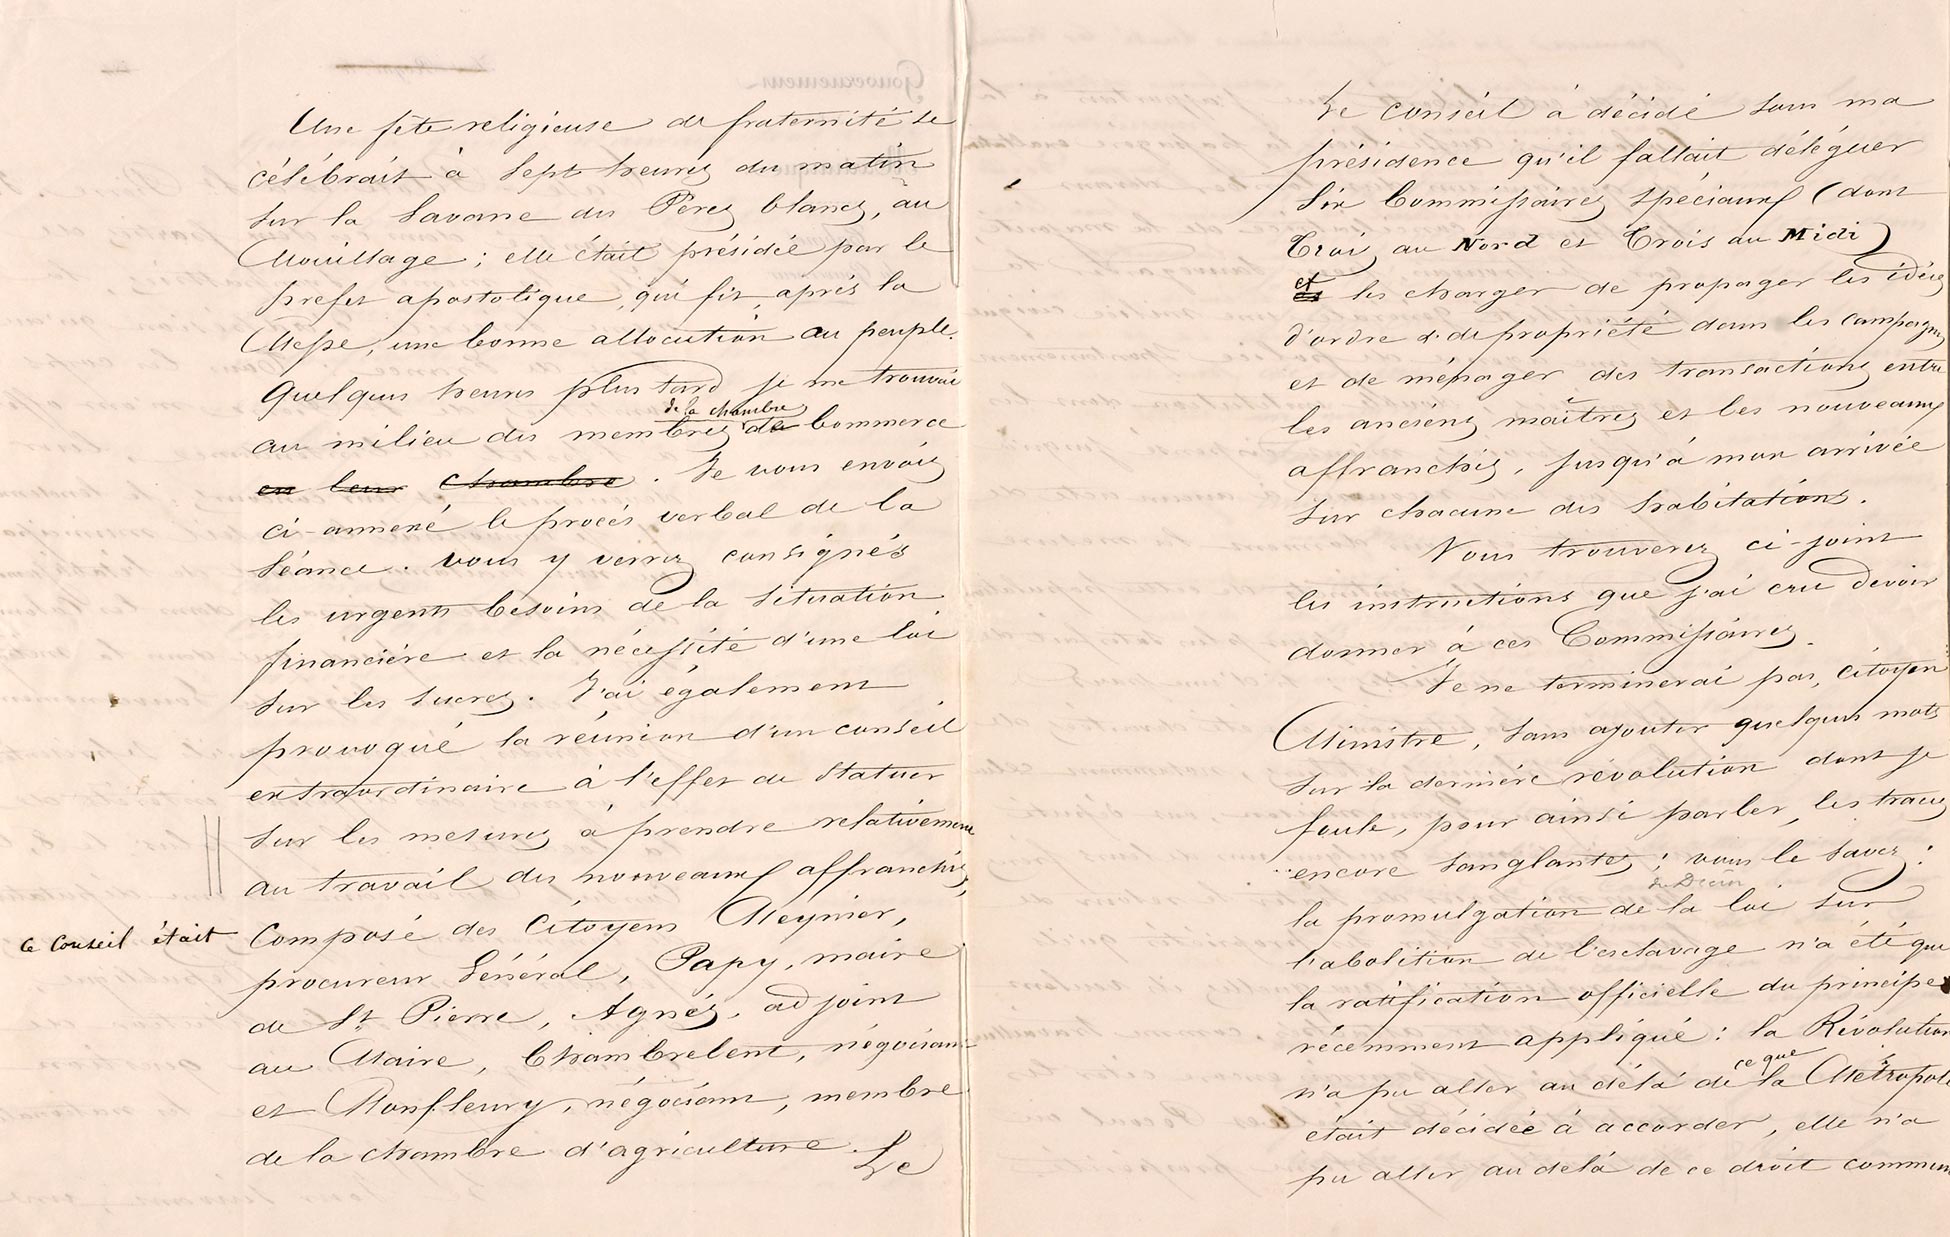 Une fête religieuse de fraternité se
célébrait à Sept heures du matin
sur la Savane des Pères blancs, au
Mouillage ; elle était présidée par le
préfet apostolique, qui fit, après la
Messe, une bonne allocution au peuple.
Quelques heures plus tard je me trouvai
de la chambre
au milieu des membres de Commerce
en leur Chambre. Je vous envoie
ci-annexé le procès verbal de la
Séance. vous y verrez consignés
les urgents besoins de la situation
financière et la nécessité d'une loi
sur les sucres. J'ai également
provoqué la réunion d'un conseil
extraordinaire à l'effet de statuer
sur les mesures à prendre relativement
au travail des nouveaux affranchis,
Ce Conseil était
composé des Citoyens Meynier,
procureur Général, Papy, maire
de St Pierre, Agnès, adjoint
au Maire, Chambrelent, négociant
et Monfleury, négociant, membre
de la chambre d'agriculture. Le
Le conseil à décidé sous ma
présidence qu'il fallait déléguer
Six Commissaires spéciaux (dont
Trois au Nord et Trois au Midi)
et
les charger de propager les idées
d'ordre & de propriété dans les campagnes
et de ménager des transactions entre
les anciens maîtres et les nouveaux
affranchis, jusqu'à mon arrivée
sur chacune des habitations.
Vous trouverez ci-joint
les instructions que j'ai cru devoir
donner à ces Commissaires.
Je ne terminerai pas, Citoyen
Ministre, sans ajouter quelques mots
sur la dernière révolution dont je
foule, pour ainsi parler, les traces
encore sanglantes ; vous le savez :
du Décret
la promulgation de la loi sur
l'abolition de l'esclavage n'a été que
la ratification officielle du principe
récemment appliqué : la Révolution
ce que
n'a pu aller au delà de la Métropole
était décidée à accorder, elle n'a
pu aller au delà de ce droit commun